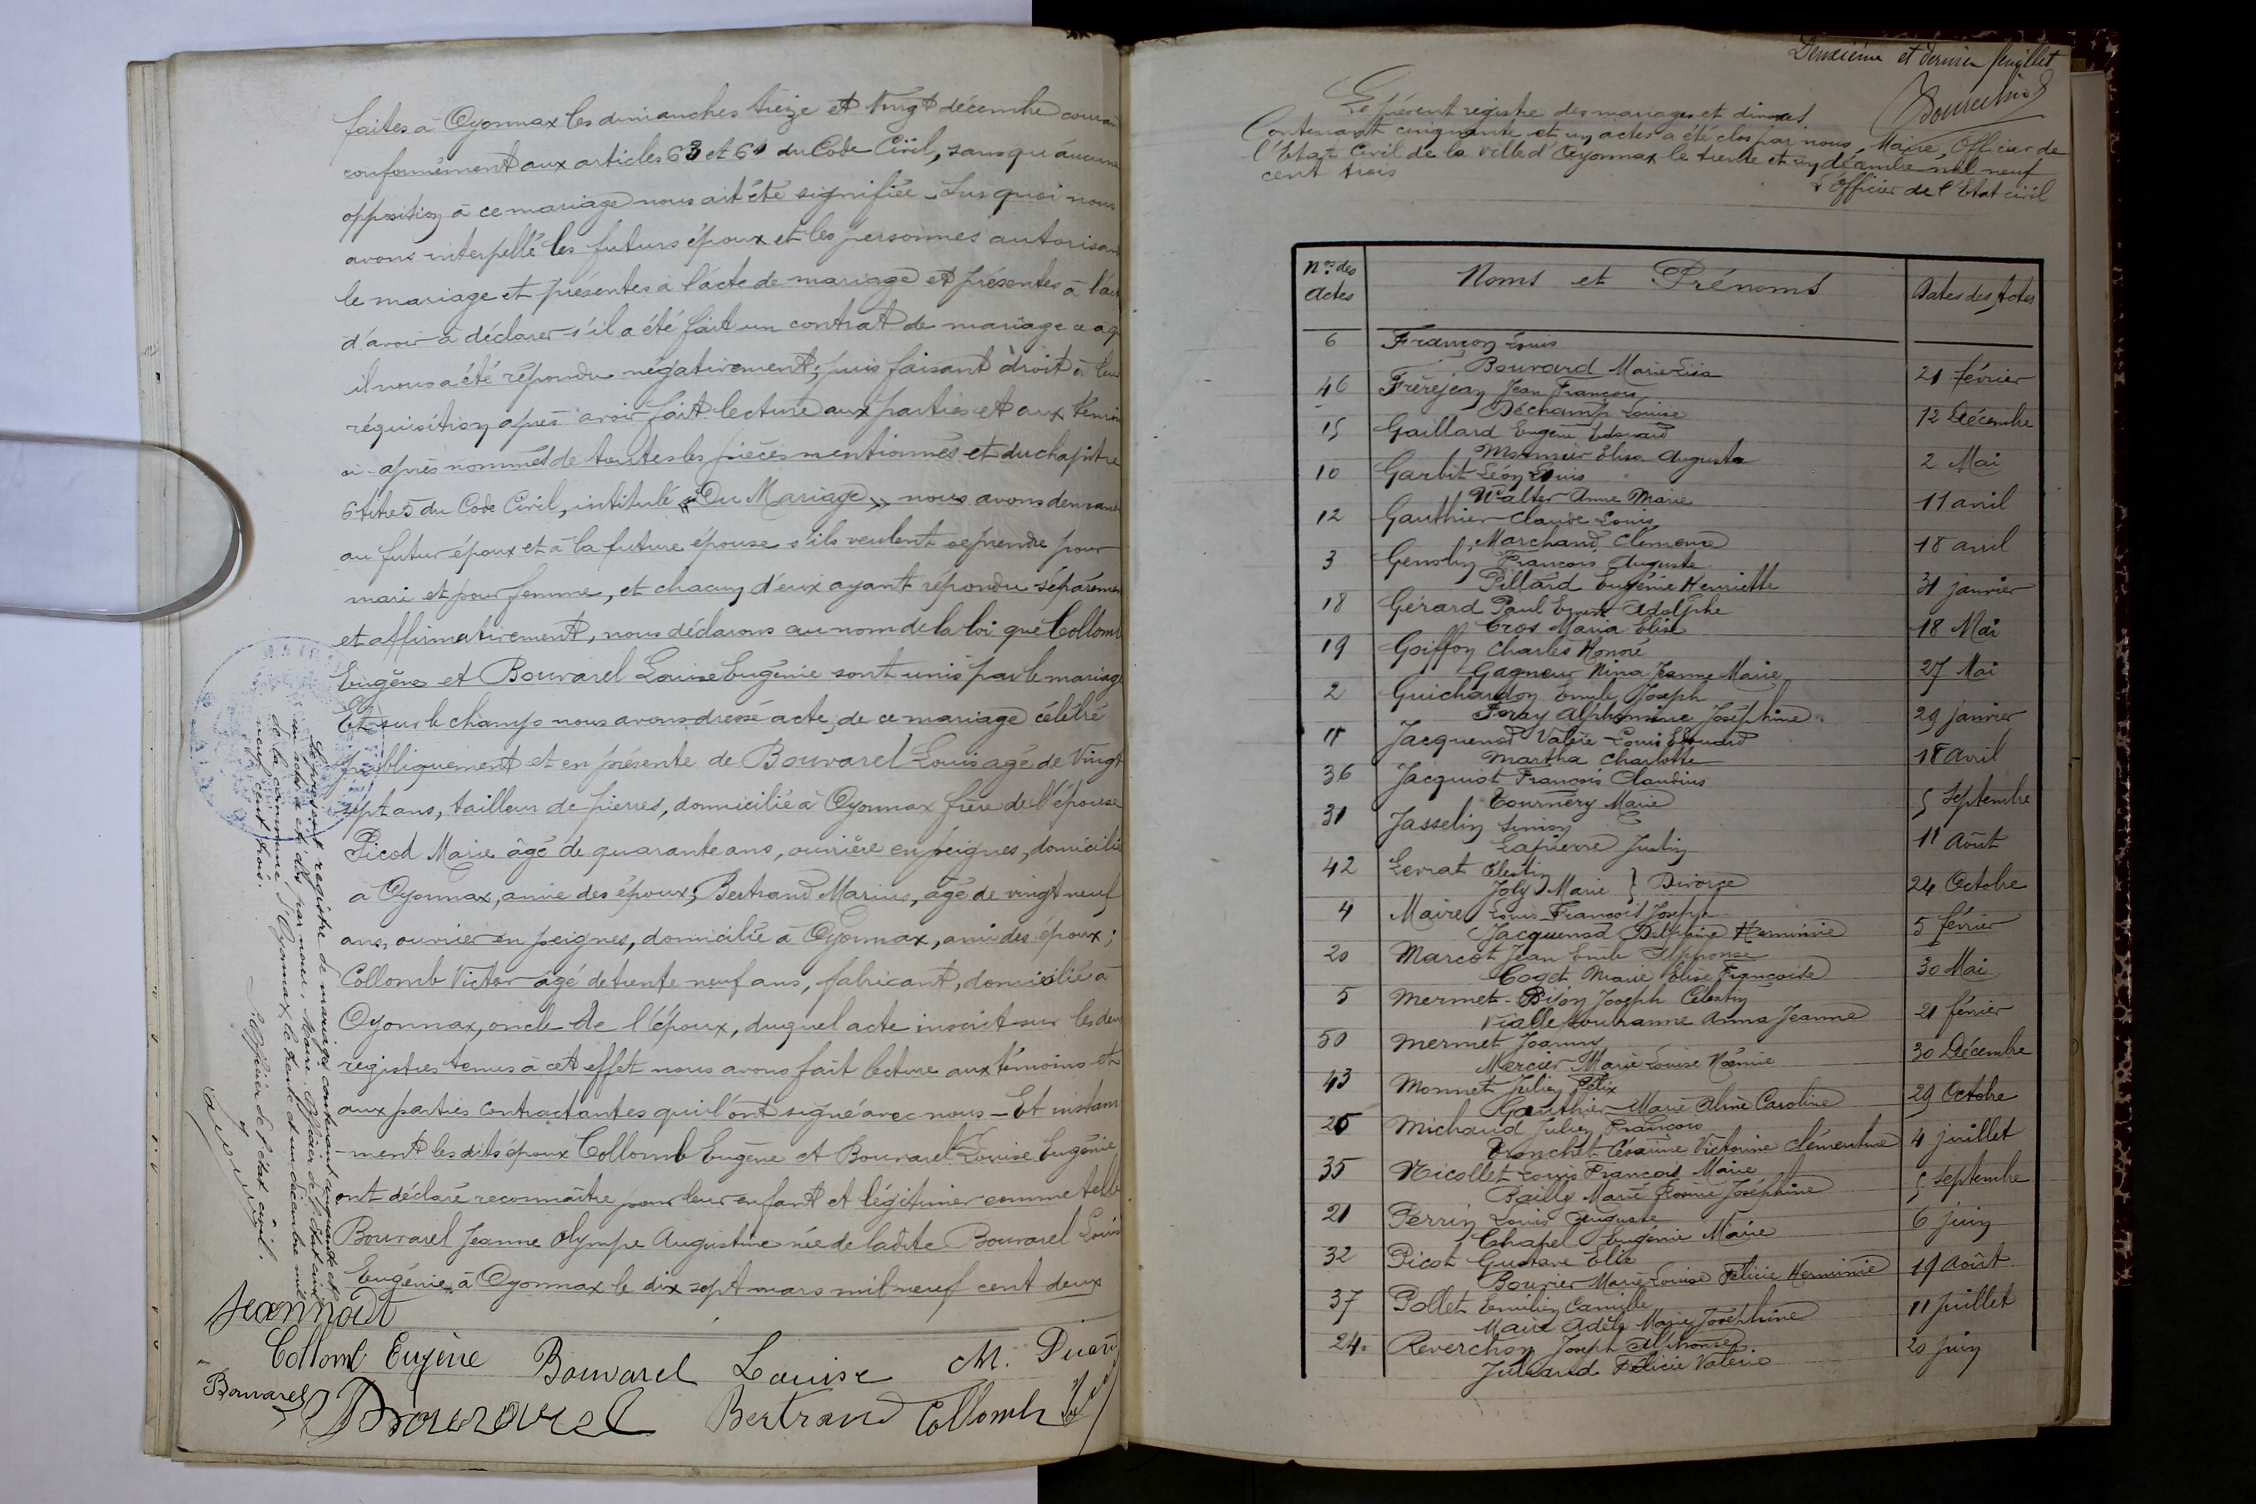 faites à Oyonnax les dimanches treize et vingt décembre couran
conformément aux articles 63 et 64 du Code Civil, sans qu'aucune
opposition à ce mariage nous ait été signifiée. Sur quoi nous
avons interpellé les futurs époux et les personnes autorisan
le mariage et présentes à l'acte de mariage et présentes à l'act
d'avoir à déclarer s'il a été fait un contrat de mariage
il nous a été répondu négativement; puis faisant droit à leur
réquisition après avoir fait lecture aux parties et aux témoins
ci-après nommés de toutes les pièces mentionnées et du chapitre
6 titre 5 du Code Civil, intitulé « Du Mariage » nous avons demandé
au futur époux et à la future épouse s'ils veulent se prendre pour
mari et pour femme, et chacun d'eux ayant répondu séparémen
et affirmativement, nous déclarons au nom de la loi que Collomb
Eugène et Bouvarel Louise Eugénie sont unis par le mariage
Et sur le champ nous avons dressé acte de ce mariage célébré
publiquement et en présente de Bouvarel Louis agé de Vingt
sept ans, tailleur de pierres, domicilié à Oyonnax frère de l'épouse
Picod Marie âgé de quarante ans, ouvrière en peignes, domicilié
à Oyonnax, amie des époux; Bertrand Marius, agé de vingt neuf
ans, ouvrier en peignes, domicilié à Oyonnax, ami des époux;
Collomb Victor agé de trente neuf ans, fabricant, domicilié à
Oyonnax, oncle de l'époux, duquel acte inscrit sur les deux
registres tenus à cet effet nous avons fait lecture aux témoins et
aux parties contractantes qui l'ont signé avec nous - Et instam
-ment les dits époux Collomb Eugène et Bouvarel Louise Eugénie
ont déclaré reconnaître pour leur enfant et légitimer comme telle
Bouvarel Jeanne Olympe Augustine née de ladite Bouvarel Louise
Eugénie, à Oyonnax le dix sept mars mil neuf cent deux
Jeannodt
Collomb Eugène Bouvarel Louise M. Picod
Bouvarel Bouvarel Bertrand Collomb
Le présent registre de mariages contenant cinquante et
un actes a été clos par nous, Maire, Officier de l'Etat civil
de la commune d'Oyonnax, le trente et un décembre mil
neuf cent trois.
L'officier de l'état civil.
Deuxième et dernier feuillet
Le présent registre des mariages et divorces
Contenant cinquante et un actes a été clos par nous, Maire, Officier de
l'Etat Civil de la Ville d'Oyonnax le trente et un décembre mil neuf
cent trois
L'Officier de l'Etat civil
Nos des Actes Noms et Prénoms Dates des Actes
6 Françon Louis
Bouvard Marie Lisa 21 février
46 Frèrejean Jean François
Déchamp Louise 12 Décembre
15 Gaillard Eugène Edouard
Monnier Elisa Augusta 2 Mai
10 Garbit Léon Louis
Walter Anne Marie 11 avril
12 Gauthier Claude Louis
Marchand Clémence 18 avril
3 Genolin François Auguste
Pillard Eugénie Henriette 31 janvier
18 Gérard Paul Ernest Adolphe
Cros Maria Elise 18 Mai
19 Goiffon Charles Honoré
Gagneur Nina Jeanne Marie 27 Mai
2 Guichardon Emile Joseph
Feray Alphonsine Joséphine 29 janvier
11 Jacquenod Valère Louis Edouard
Martha Charlotte 18 avril
36 Jacquiot François Claudius
Tournery Marie 5 Septembre
31 Jasselin Simon
Lapierre Justin 11 Août
42 Levrat Célestin
Joly Marie } Divorce 24 Octobre
4 Maire Louis François Joseph
Jacquenod Delphine Herminie 5 février
20 Marcot Jean Emile Alphonse
Coget Marie Elise Françoise 30 Mai
5 Mermet-Bijon Joseph Célestin
Vialle Anna Jeanne 21 février
50 Mermet Joanny
Mercier Marie Louise Noémie 30 Décembre
43 Monnet Julien Félix
Gauthier Marie Aline Caroline 29 Octobre
26 Michaud Julien François
Tronchet Césarine Victorine Clémentine 4 juillet
35 Nicollet Louis François Marie
Bailly Marie Rosine Joséphine 5 Septembre
21 Perrin Louis Auguste
Chapel Eugénie Marie 6 juin
32 Picot Gustave Elie
Bouvier Marie Louise Félicie Herminie 19 Août
37 Pollet Emilien Camille
Maire Adèle Marie Joséphine 11 Juillet
24 Reverchon Joseph Alphonse
Juliand Félicie Valérie 20 juin